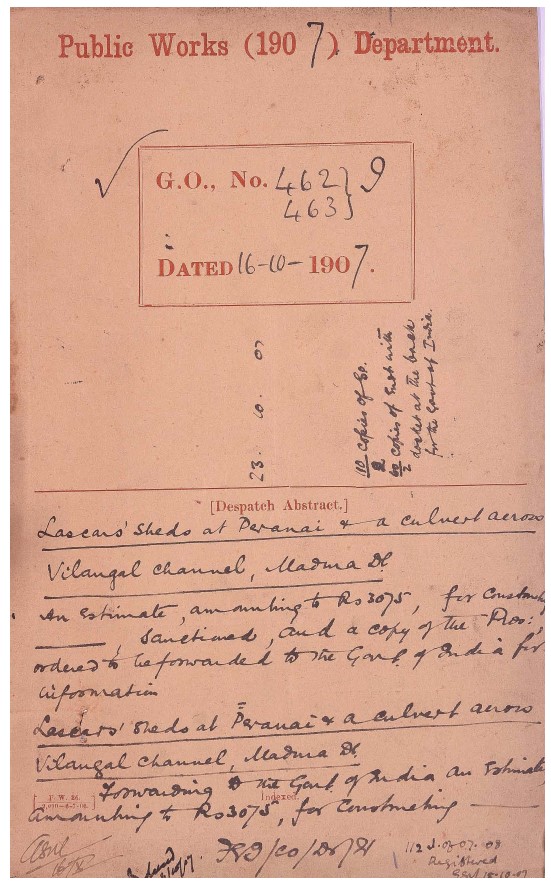 Public Works (1907) Department.
G.O., No. 462}
463} I
DATED 16-10-1907.
23. 10. 07
110 copies of Eo.
copies of Endt with
docket at the back
for the Govt of India.
[Despatch Abstract.]
Lascars' Sheds at Peranai & a culvert across
Vilangal Channel, Madura Dt.
An Estimate, amounting to Rs 3075, for Constructg
———, sanctioned, and a copy of the Pros:,
ordered to be forwarded to the Govt. of India for
information
Lascars' Sheds at Peranai & a culvert across
Vilangal Channel, Madura Dt.
Forwarding to the Govt. of India an Estimate,
Indexed.
amounting to Rs 3075, for Constructing ———
112 I. of 07.08
Registered